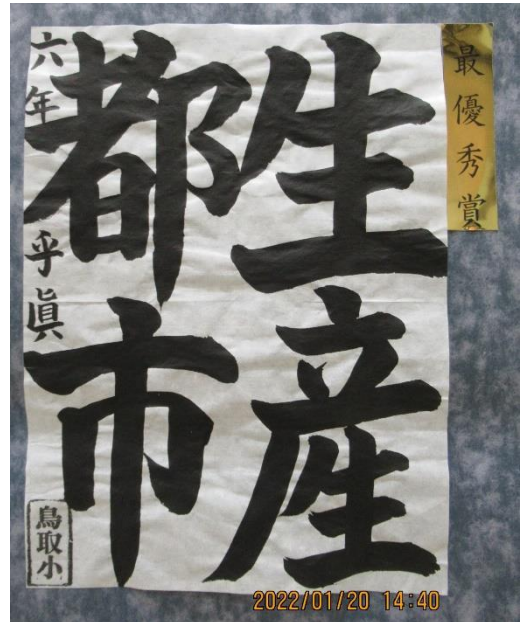 最優秀賞
生産
都市
六年 乎眞
鳥取小
2022/01/20 14:40